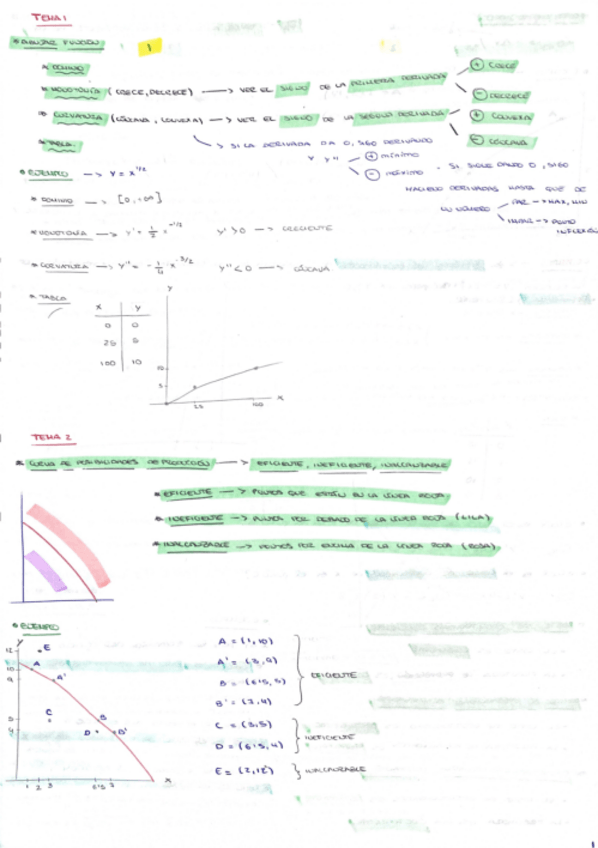 TEMA 1
* DIBUJAR FUNCIÓN 1
* DOMINIO
* MONOTONÍA (CRECE, DECRECE) → VER EL SIGNO DE LA PRIMERA DERIVADA
+ CRECE
- DECRECE
* CURVATURA (CÓNCAVA, CONVEXA) → VER EL SIGNO DE LA SEGUNDA DERIVADA
+ CONVEXA
- CÓNCAVA
* TABLA
↳ SI LA DERIVADA DA 0, SIGO DERIVANDO
Y Y''
+ mínimo
- máximo
· SI SIGUE DANDO 0, SIGO
HACIENDO DERIVADAS HASTA QUE DE
UN NÚMERO
PAR → MAX, MIN
IMPAR → PUNTO
INFLEXIÓN
* EJEMPLO → Y = X^1/2
* DOMINIO → [0, +∞)
* MONOTONÍA → Y' = 1/2 x^-1/2 Y' > 0 → CRECIENTE
* CURVATURA → Y'' = -1/4 x^-3/2 Y'' < 0 → CÓNCAVA
* TABLA
X Y
0 0
25 5
100 10
Y
10
5
25 100 X
TEMA 2
* CURVA DE POSIBILIDADES DE PRODUCCIÓN → EFICIENTE, INEFICIENTE, INALCANZABLE
* EFICIENTE → PUNTOS QUE ESTÉN EN LA LÍNEA ROJA
* INEFICIENTE → PUNTOS POR DEBAJO DE LA LÍNEA ROJA (LILA)
* INALCANZABLE → PUNTOS POR ENCIMA DE LA LÍNEA ROJA (ROSA)
* EJEMPLO
Y
12
10
9
5
4
E
A
A'
C
B
D
B'
1 2 3 6'5 7 X
A = (1, 10)
A' = (3, 9)
B = (6'5, 5)
B' = (7, 4)
EFICIENTE
C = (3, 5)
D = (6'5, 4)
INEFICIENTE
E = (2, 12)
INALCANZABLE
1